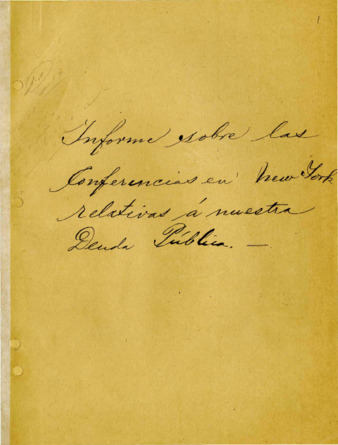 1
Informe sobre las
Conferencias en New York
relativas á nuestra
Deuda Pública. —